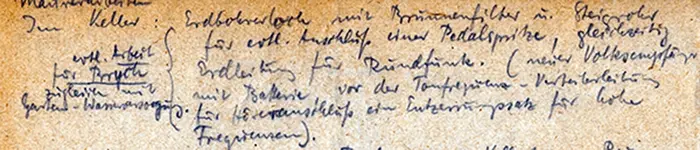 Im Keller: Erdbohrerloch mit Brunnenfilter u. Steigrohr
für evtl. Anschluß einer Pedalspritze, gleichzeitig
Erdleitung für Rundfunk. (neuer Volksempfänger
mit Batterie vor der Tonfrequenz-Verteilerleitung
für Höreranschluß ein Entzerrungssatz für hohe
Frequenzen).
evtl. Arbeit
für
zugleich mit
Garten-Wasserversorgung.